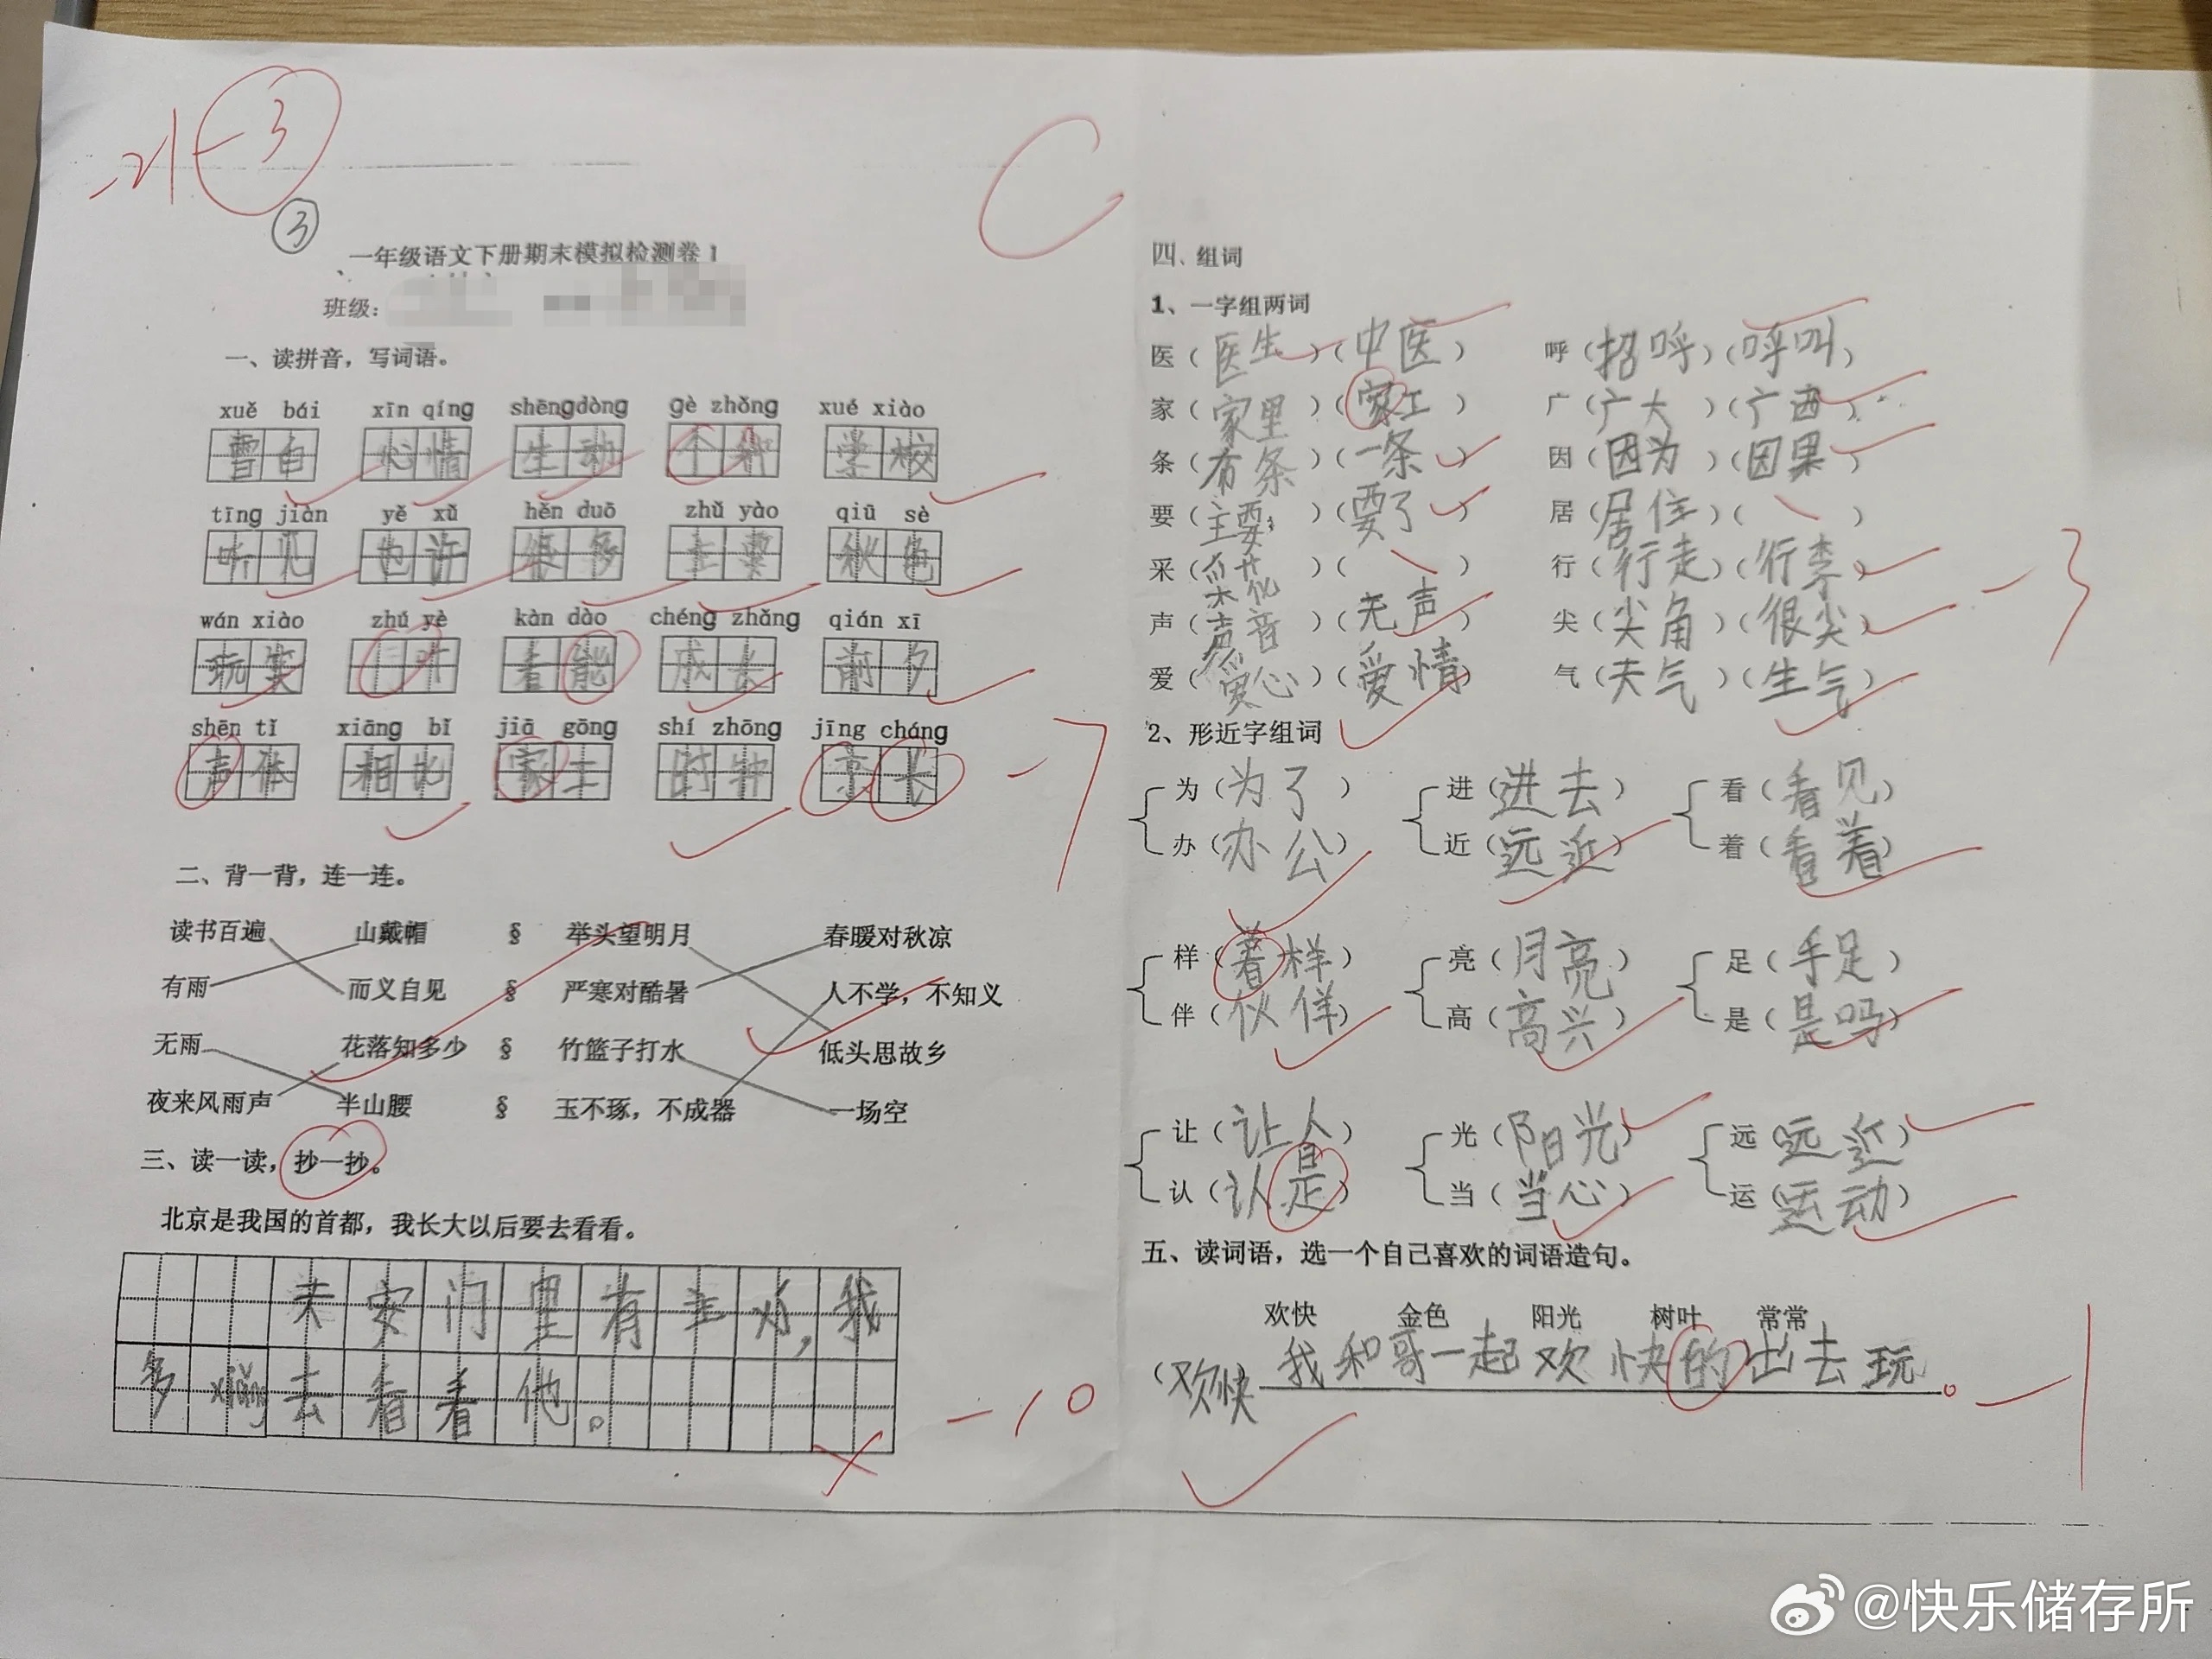 -21 -3
③
C
一年级语文下册期末模拟检测卷1
班级:
一、读拼音，写词语。
xuě bái xīn qíng shēngdòng gè zhǒng xué xiào
雪白 心情 生动 个种 学校
tīng jiàn yě xǔ hěn duō zhǔ yào qiū sè
听见 也许 很多 主要 秋色
wán xiào zhú yè kàn dào chéng zhǎng qián xī
玩笑 叶 看能 成长 前夕
shēn tǐ xiāng bǐ jiā gōng shí zhōng jīng cháng
声体 相比 家工 时钟 京长
-7
二、背一背，连一连。
读书百遍 山戴帽 § 举头望明月 春暖对秋凉
有雨 而义自见 § 严寒对酷暑 人不学，不知义
无雨 花落知多少 § 竹篮子打水 低头思故乡
夜来风雨声 半山腰 § 玉不琢，不成器 一场空
三、读一读，抄一抄。
北京是我国的首都，我长大以后要去看看。
安门里有主，我
多xiǎng去看着他。
-10
四、组词
1、一字组两词
医（医生）（中医） 呼（招呼）（呼叫）
家（家里）（家工） 广（广大）（广西）
条（有条）（一条） 因（因为）（因果）
要（主要）（要了） 居（居住）（ ）
采（采花）（ ） 行（行走）（行李）
声（声音）（无声） 尖（尖角）（很尖）
爱（爱心）（爱情） 气（天气）（生气）
-3
2、形近字组词
为（为了） 进（进去） 看（看见）
办（办公） 近（远近） 着（看着）
样（着样） 亮（月亮） 足（手足）
伴（伙伴） 高（高兴） 是（是吗）
让（让人） 光（阳光） 远（远近）
认（认是） 当（当心） 运（运动）
五、读词语，选一个自己喜欢的词语造句。
欢快 金色 阳光 树叶 常常
（欢快）我和哥一起欢快的出去玩。
-1
@快乐储存所